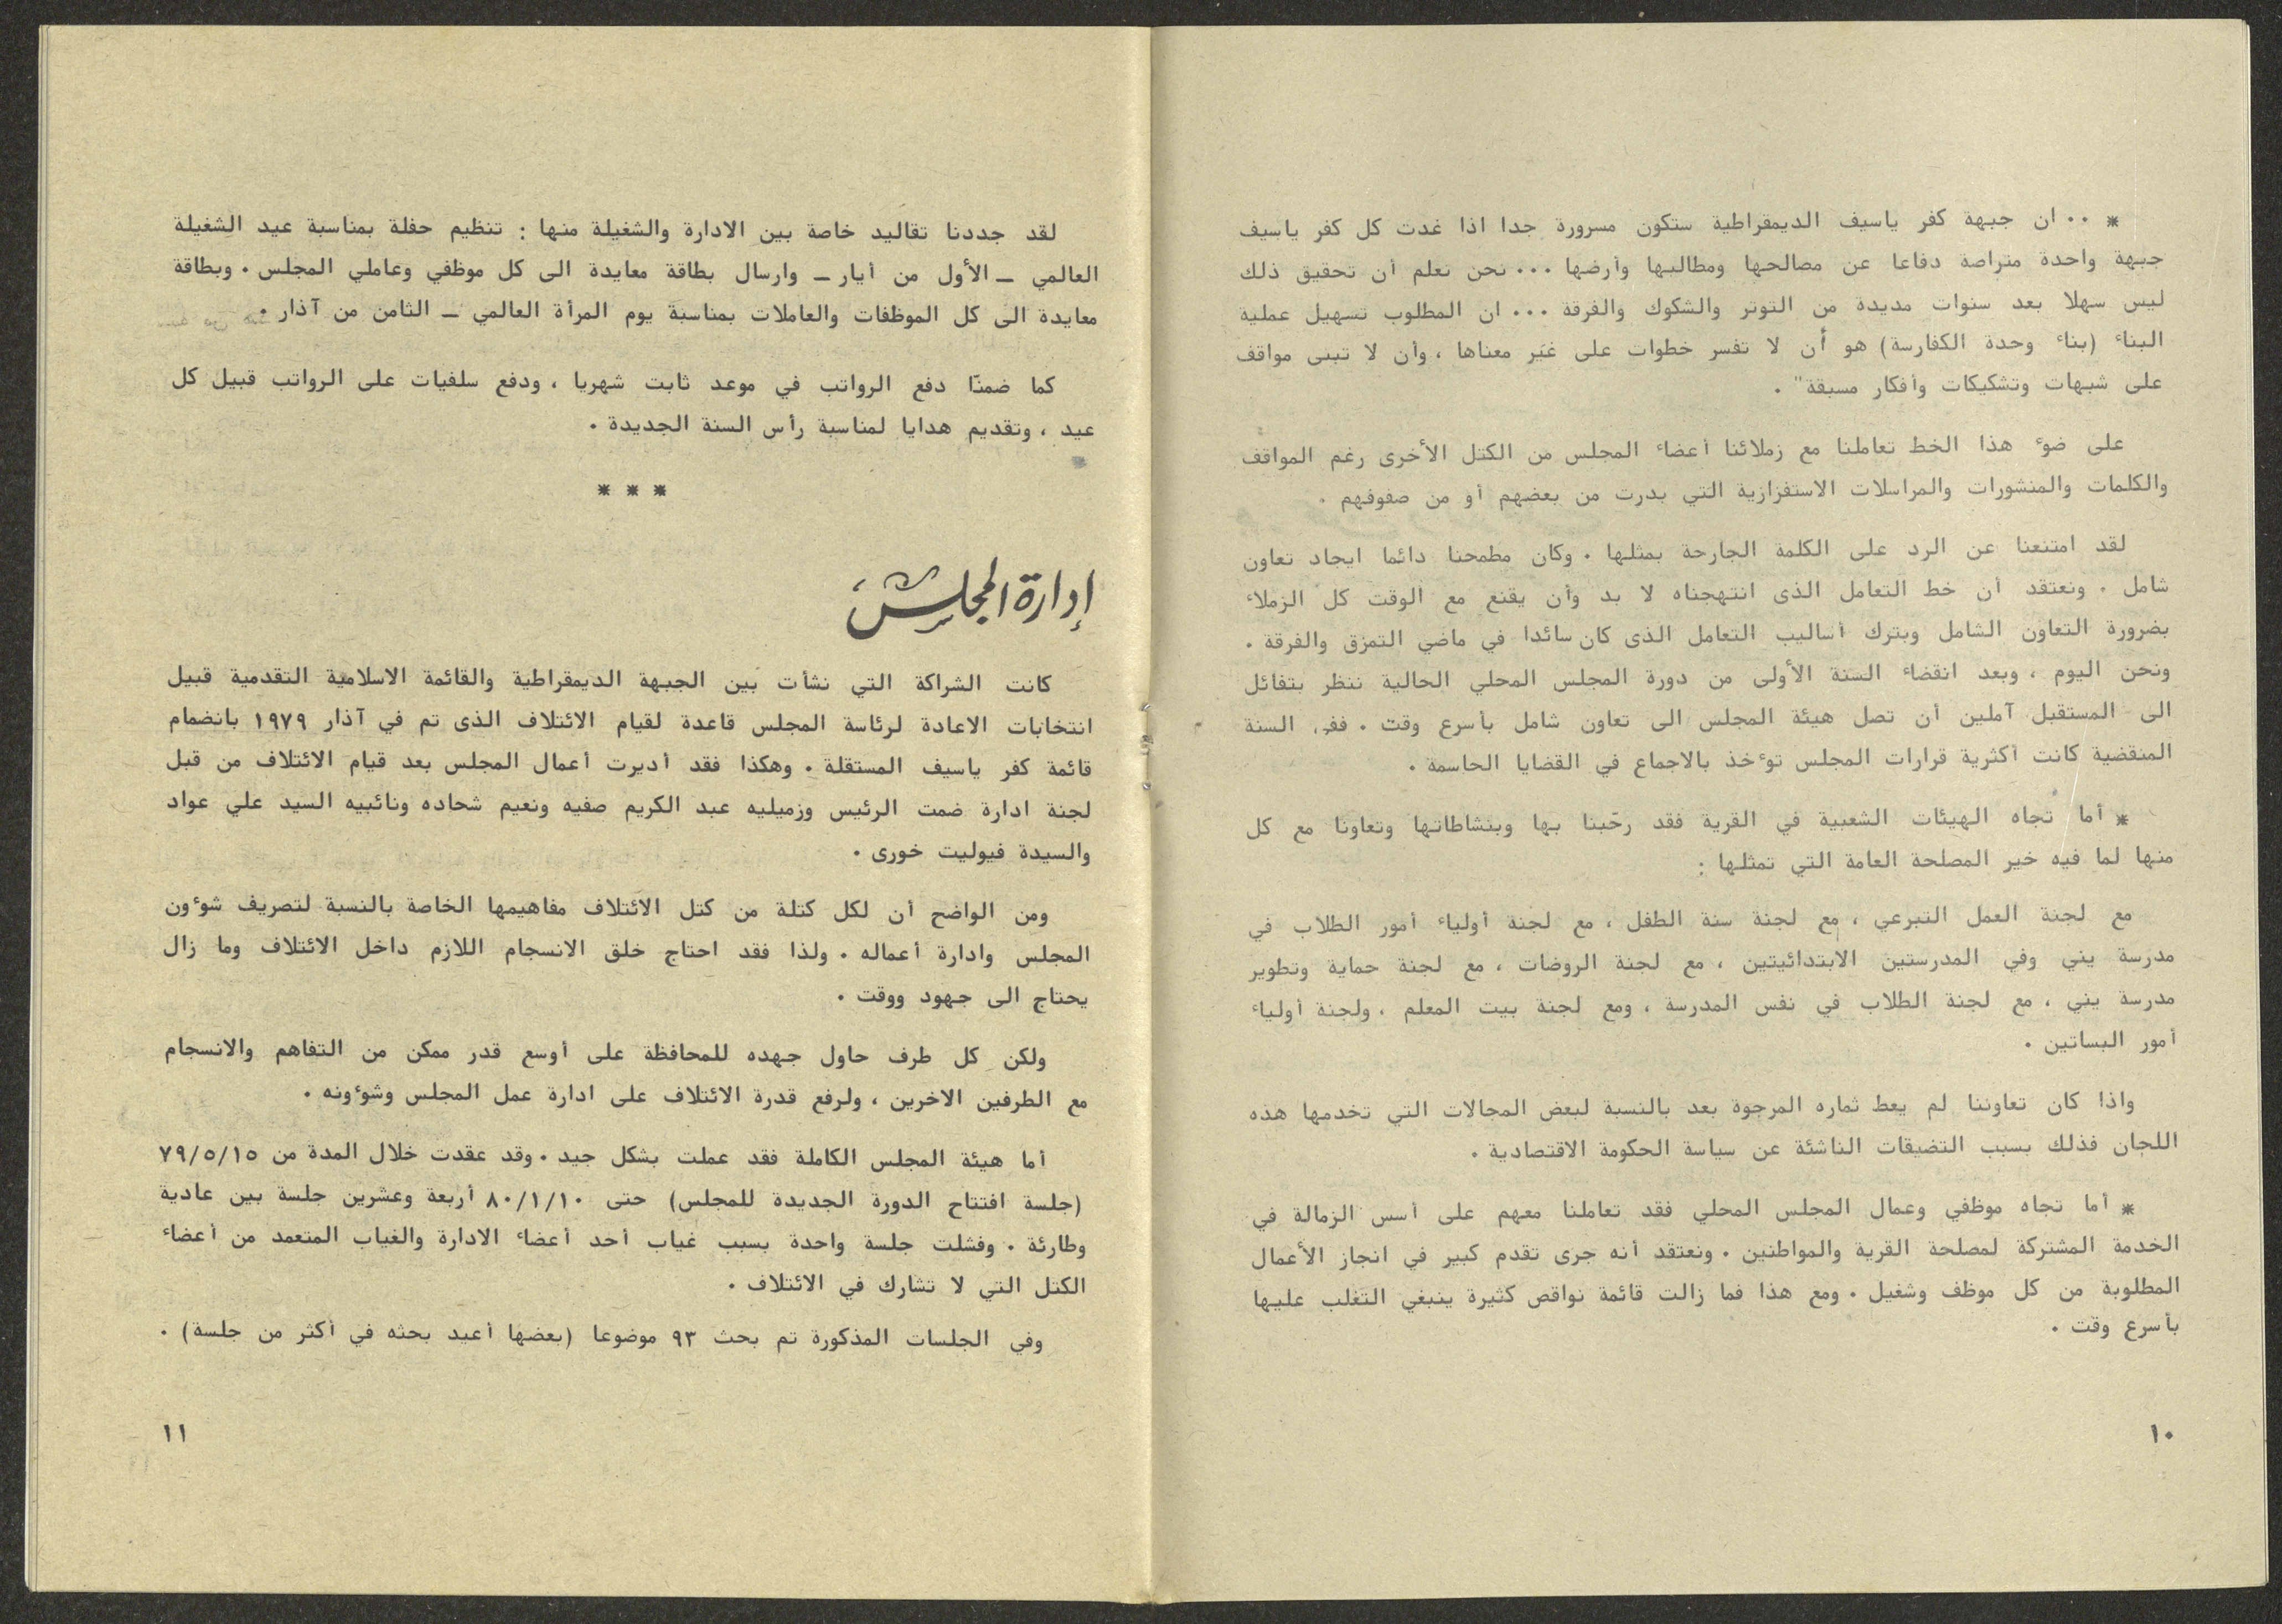 * ٠٠ ان جبهة كفر ياسيف الديمقراطية ستكون مسرورة جدا اذا غدت كل كفر ياسيف
جبهة واحدة متراصة دفاعا عن مصالحها ومطالبها وأرضها ٠٠٠ نحن نعلم أن تحقيق ذلك
ليس سهلا بعد سنوات مديدة من التوتر والشكوك والفرقة ٠٠٠ ان المطلوب تسهيل عملية
البناء (بناء وحدة الكفارسة) هو أن لا تفسر خطوات على غير معناها ، وأن لا تبنى مواقف
على شبهات وتشكيكات وأفكار مسبقة" ٠
على ضوء هذا الخط تعاملنا مع زملائنا أعضاء المجلس من الكتل الأخرى رغم المواقف
والكلمات والمنشورات والمراسلات الاستفزازية التي بدرت من بعضهم أو من صفوفهم ٠
لقد امتنعنا عن الرد على الكلمة الجارحة بمثلها ٠ وكان مطمحنا دائما ايجاد تعاون
شامل ٠ ونعتقد أن خط التعامل الذى انتهجناه لا بد وأن يقنع مع الوقت كل الزملاء
بضرورة التعاون الشامل وبترك أساليب التعامل الذى كان سائدا في ماضي التمزق والفرقة ٠
ونحن اليوم ، وبعد انقضاء السنة الأولى من دورة المجلس المحلي الحالية ننظر بتفائل
الى المستقبل آملين أن تصل هيئة المجلس الى تعاون شامل بأسرع وقت ٠ ففي السنة
المنقضية كانت أكثرية قرارات المجلس توءخذ بالاجماع في القضايا الحاسمة ٠
* أما تجاه الهيئات الشعبية في القرية فقد رحّبنا بها وبنشاطاتها وتعاونا مع كل
منها لما فيه خير المصلحة العامة التي تمثلها :
مع لجنة العمل التبرعي ، مع لجنة سنة الطفل ، مع لجنة أولياء أمور الطلاب في
مدرسة يني وفي المدرستين الابتدائيتين ، مع لجنة الروضات ، مع لجنة حماية وتطوير
مدرسة يني ، مع لجنة الطلاب في نفس المدرسة ، ومع لجنة بيت المعلم ، ولجنة أولياء
أمور البساتين ٠
واذا كان تعاوننا لم يعط ثماره المرجوة بعد بالنسبة لبعض المجالات التي تخدمها هذه
اللجان فذلك بسبب التضيقات الناشئة عن سياسة الحكومة الاقتصادية ٠
* أما تجاه موظفي وعمال المجلس المحلي فقد تعاملنا معهم على أسس الزمالة في
الخدمة المشتركة لمصلحة القرية والمواطنين ٠ ونعتقد أنه جرى تقدم كبير في انجاز الأعمال
المطلوبة من كل موظف وشغيل ٠ ومع هذا فما زالت قائمة نواقص كثيرة ينبغي التغلب عليها
بأسرع وقت ٠
١٠
لقد جددنا تقاليد خاصة بين الادارة والشغيلة منها : تنظيم حفلة بمناسبة عيد الشغيلة
العالمي ـ الأول من أيار ـ وارسال بطاقة معايدة الى كل موظفي وعاملي المجلس ٠ وبطاقة
معايدة الى كل الموظفات والعاملات بمناسبة يوم المرأة العالمي ـ الثامن من آذار ٠
كما ضمنّا دفع الرواتب في موعد ثابت شهريا ، ودفع سلفيات على الرواتب قبيل كل
عيد ، وتقديم هدايا لمناسبة رأس السنة الجديدة ٠
* * *
إدارة المجلس
كانت الشراكة التي نشأت بين الجبهة الديمقراطية والقائمة الاسلامية التقدمية قبيل
انتخابات الاعادة لرئاسة المجلس قاعدة لقيام الائتلاف الذى تم في آذار ١٩٧٩ بانضمام
قائمة كفر ياسيف المستقلة ٠ وهكذا فقد أديرت أعمال المجلس بعد قيام الائتلاف من قبل
لجنة ادارة ضمت الرئيس وزميليه عبد الكريم صفيه ونعيم شحاده ونائبيه السيد علي عواد
والسيدة فيوليت خورى ٠
ومن الواضح أن لكل كتلة من كتل الائتلاف مفاهيمها الخاصة بالنسبة لتصريف شوءون
المجلس وادارة أعماله ٠ ولذا فقد احتاج خلق الانسجام اللازم داخل الائتلاف وما زال
يحتاج الى جهود ووقت ٠
ولكن كل طرف حاول جهده للمحافظة على أوسع قدر ممكن من التفاهم والانسجام
مع الطرفين الاخرين ، ولرفع قدرة الائتلاف على ادارة عمل المجلس وشوءونه ٠
أما هيئة المجلس الكاملة فقد عملت بشكل جيد ٠ وقد عقدت خلال المدة من ٧٩/٥/١٥
(جلسة افتتاح الدورة الجديدة للمجلس) حتى ٨٠/١/١٠ أربعة وعشرين جلسة بين عادية
وطارئة ٠ وفشلت جلسة واحدة بسبب غياب أحد أعضاء الادارة والغياب المتعمد من أعضاء
الكتل التي لا تشارك في الائتلاف ٠
وفي الجلسات المذكورة تم بحث ٩٣ موضوعا (بعضها أعيد بحثه في أكثر من جلسة) ٠
١١